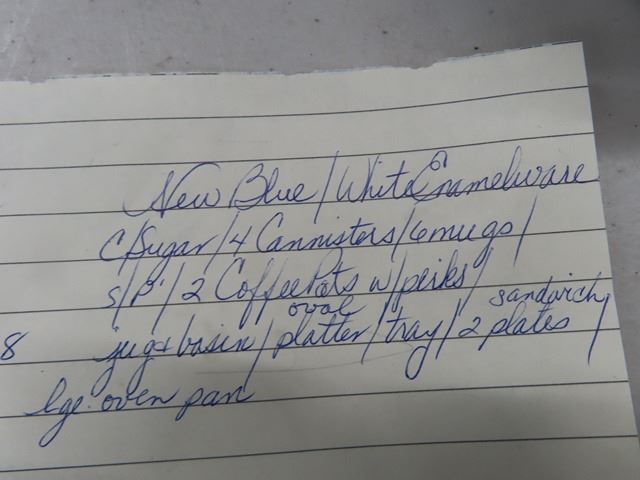 New Blue/White Enamelware
C/Sugar/4 Cannisters/6 mugs/
S/P/2 Coffee Pots w/perks/
oval sandwich
8 jug + basin/platter/tray/2 plates/
lge. oven pan